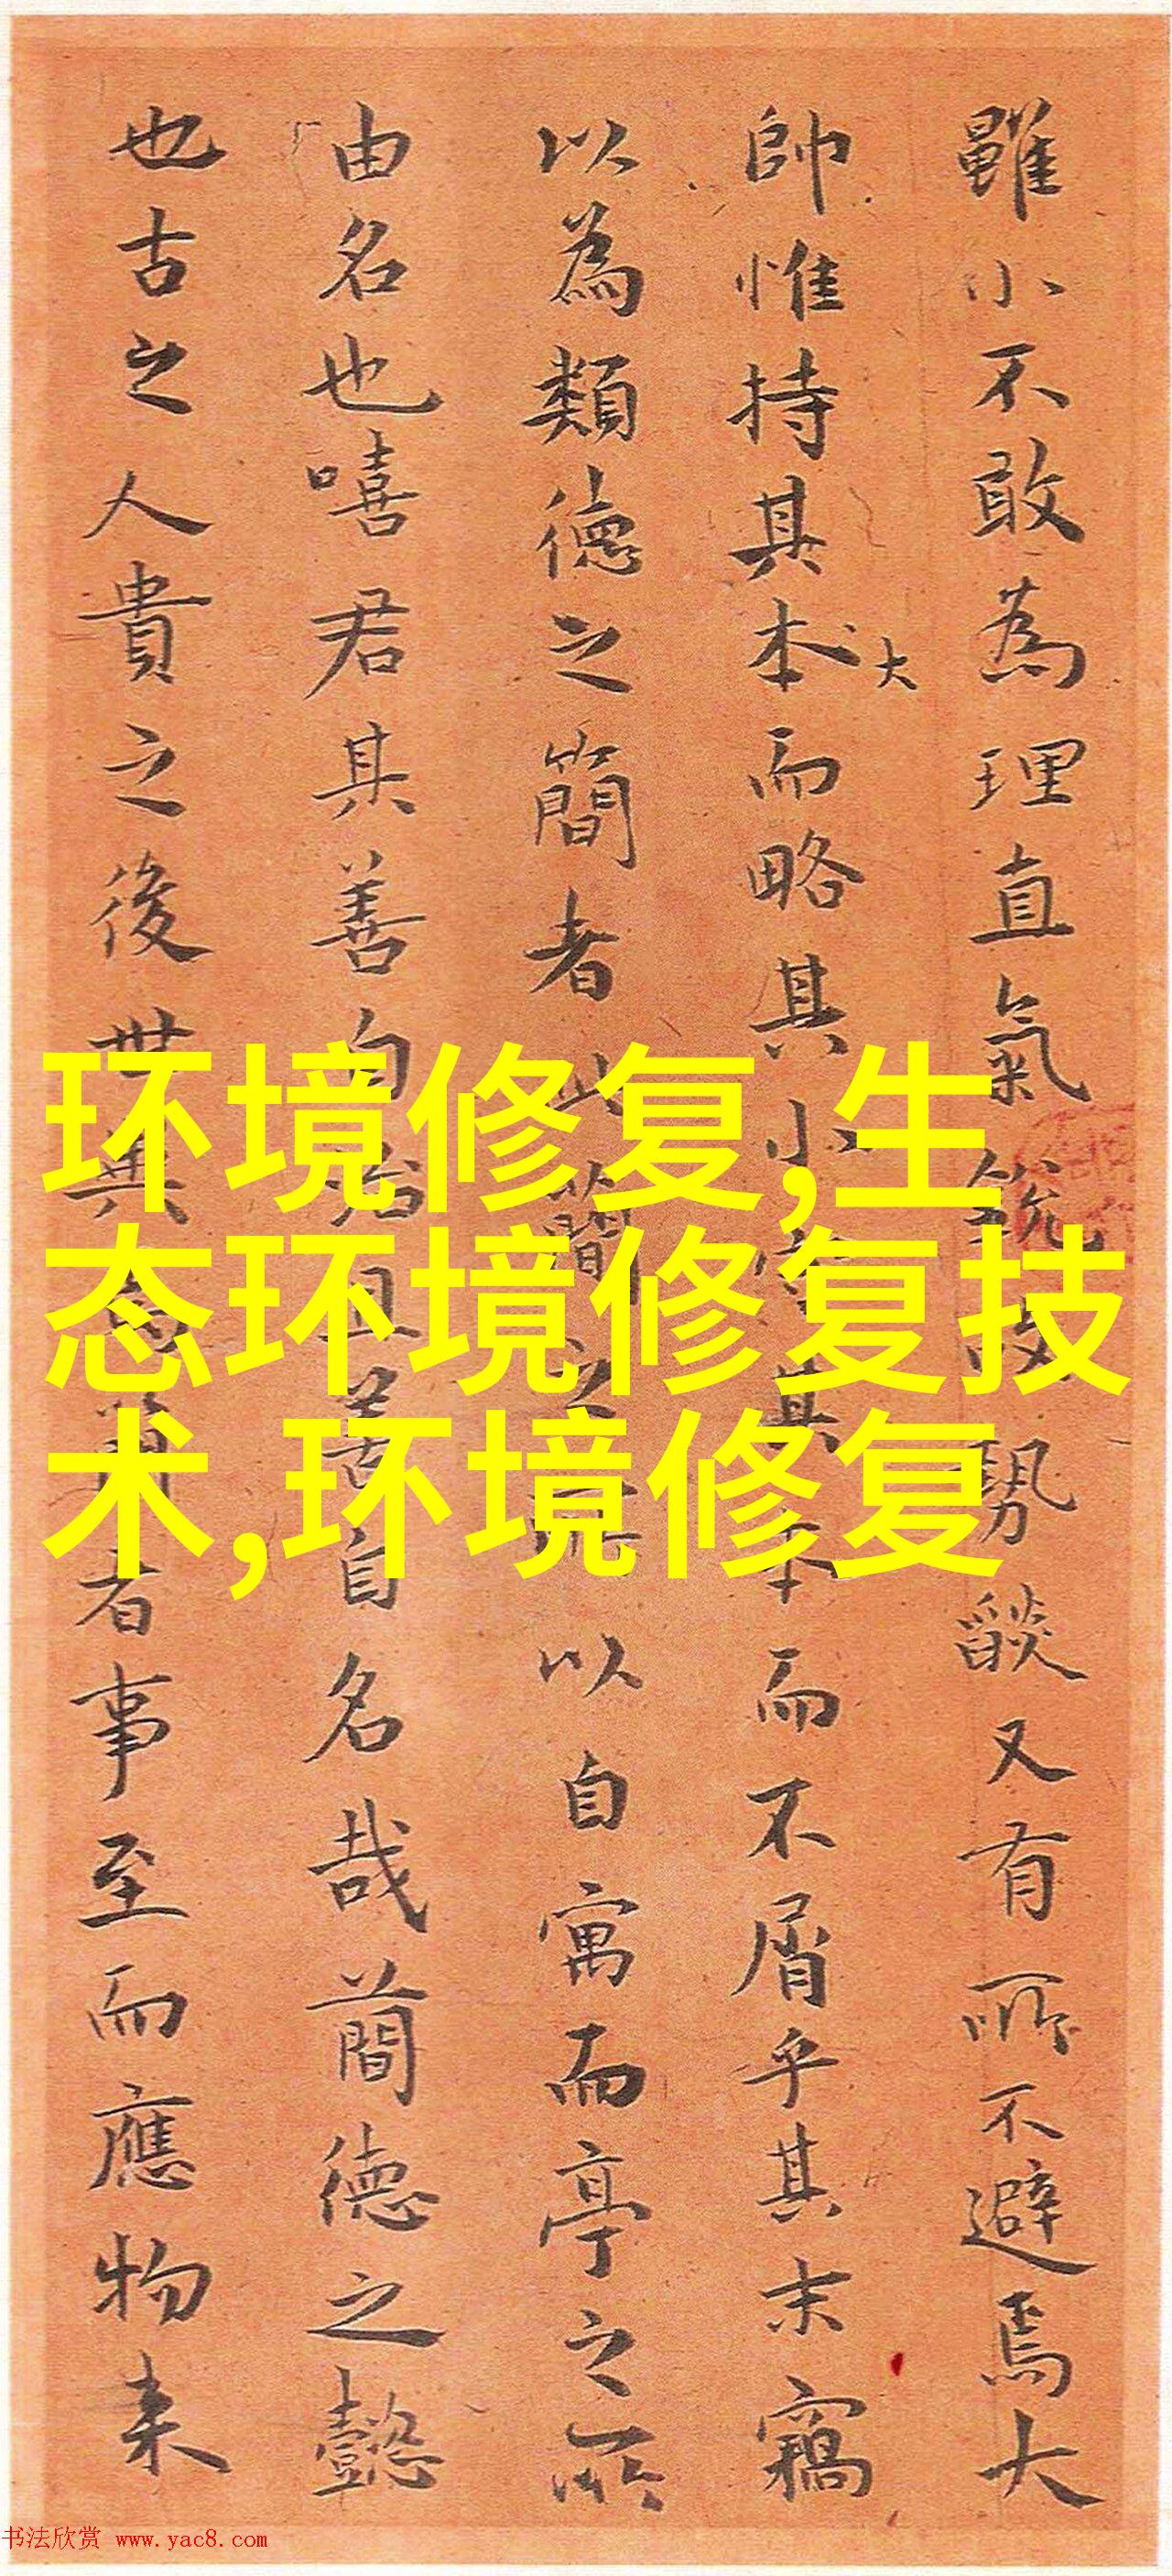 雖小不敢為理直氣銳故勢燄又有所不避焉大
帥惟持其本大而略其小當其本而不屑乎其末竊
以為類德之簡者此簡之所以自寓而亭之所
由名也嘻君其善自治且善自名哉簡德之懿
也古之人貴之後世簡者事至而應物来
环境修复,生
态环境修复技
术,环境修复
书法欣赏 www.yac8.com